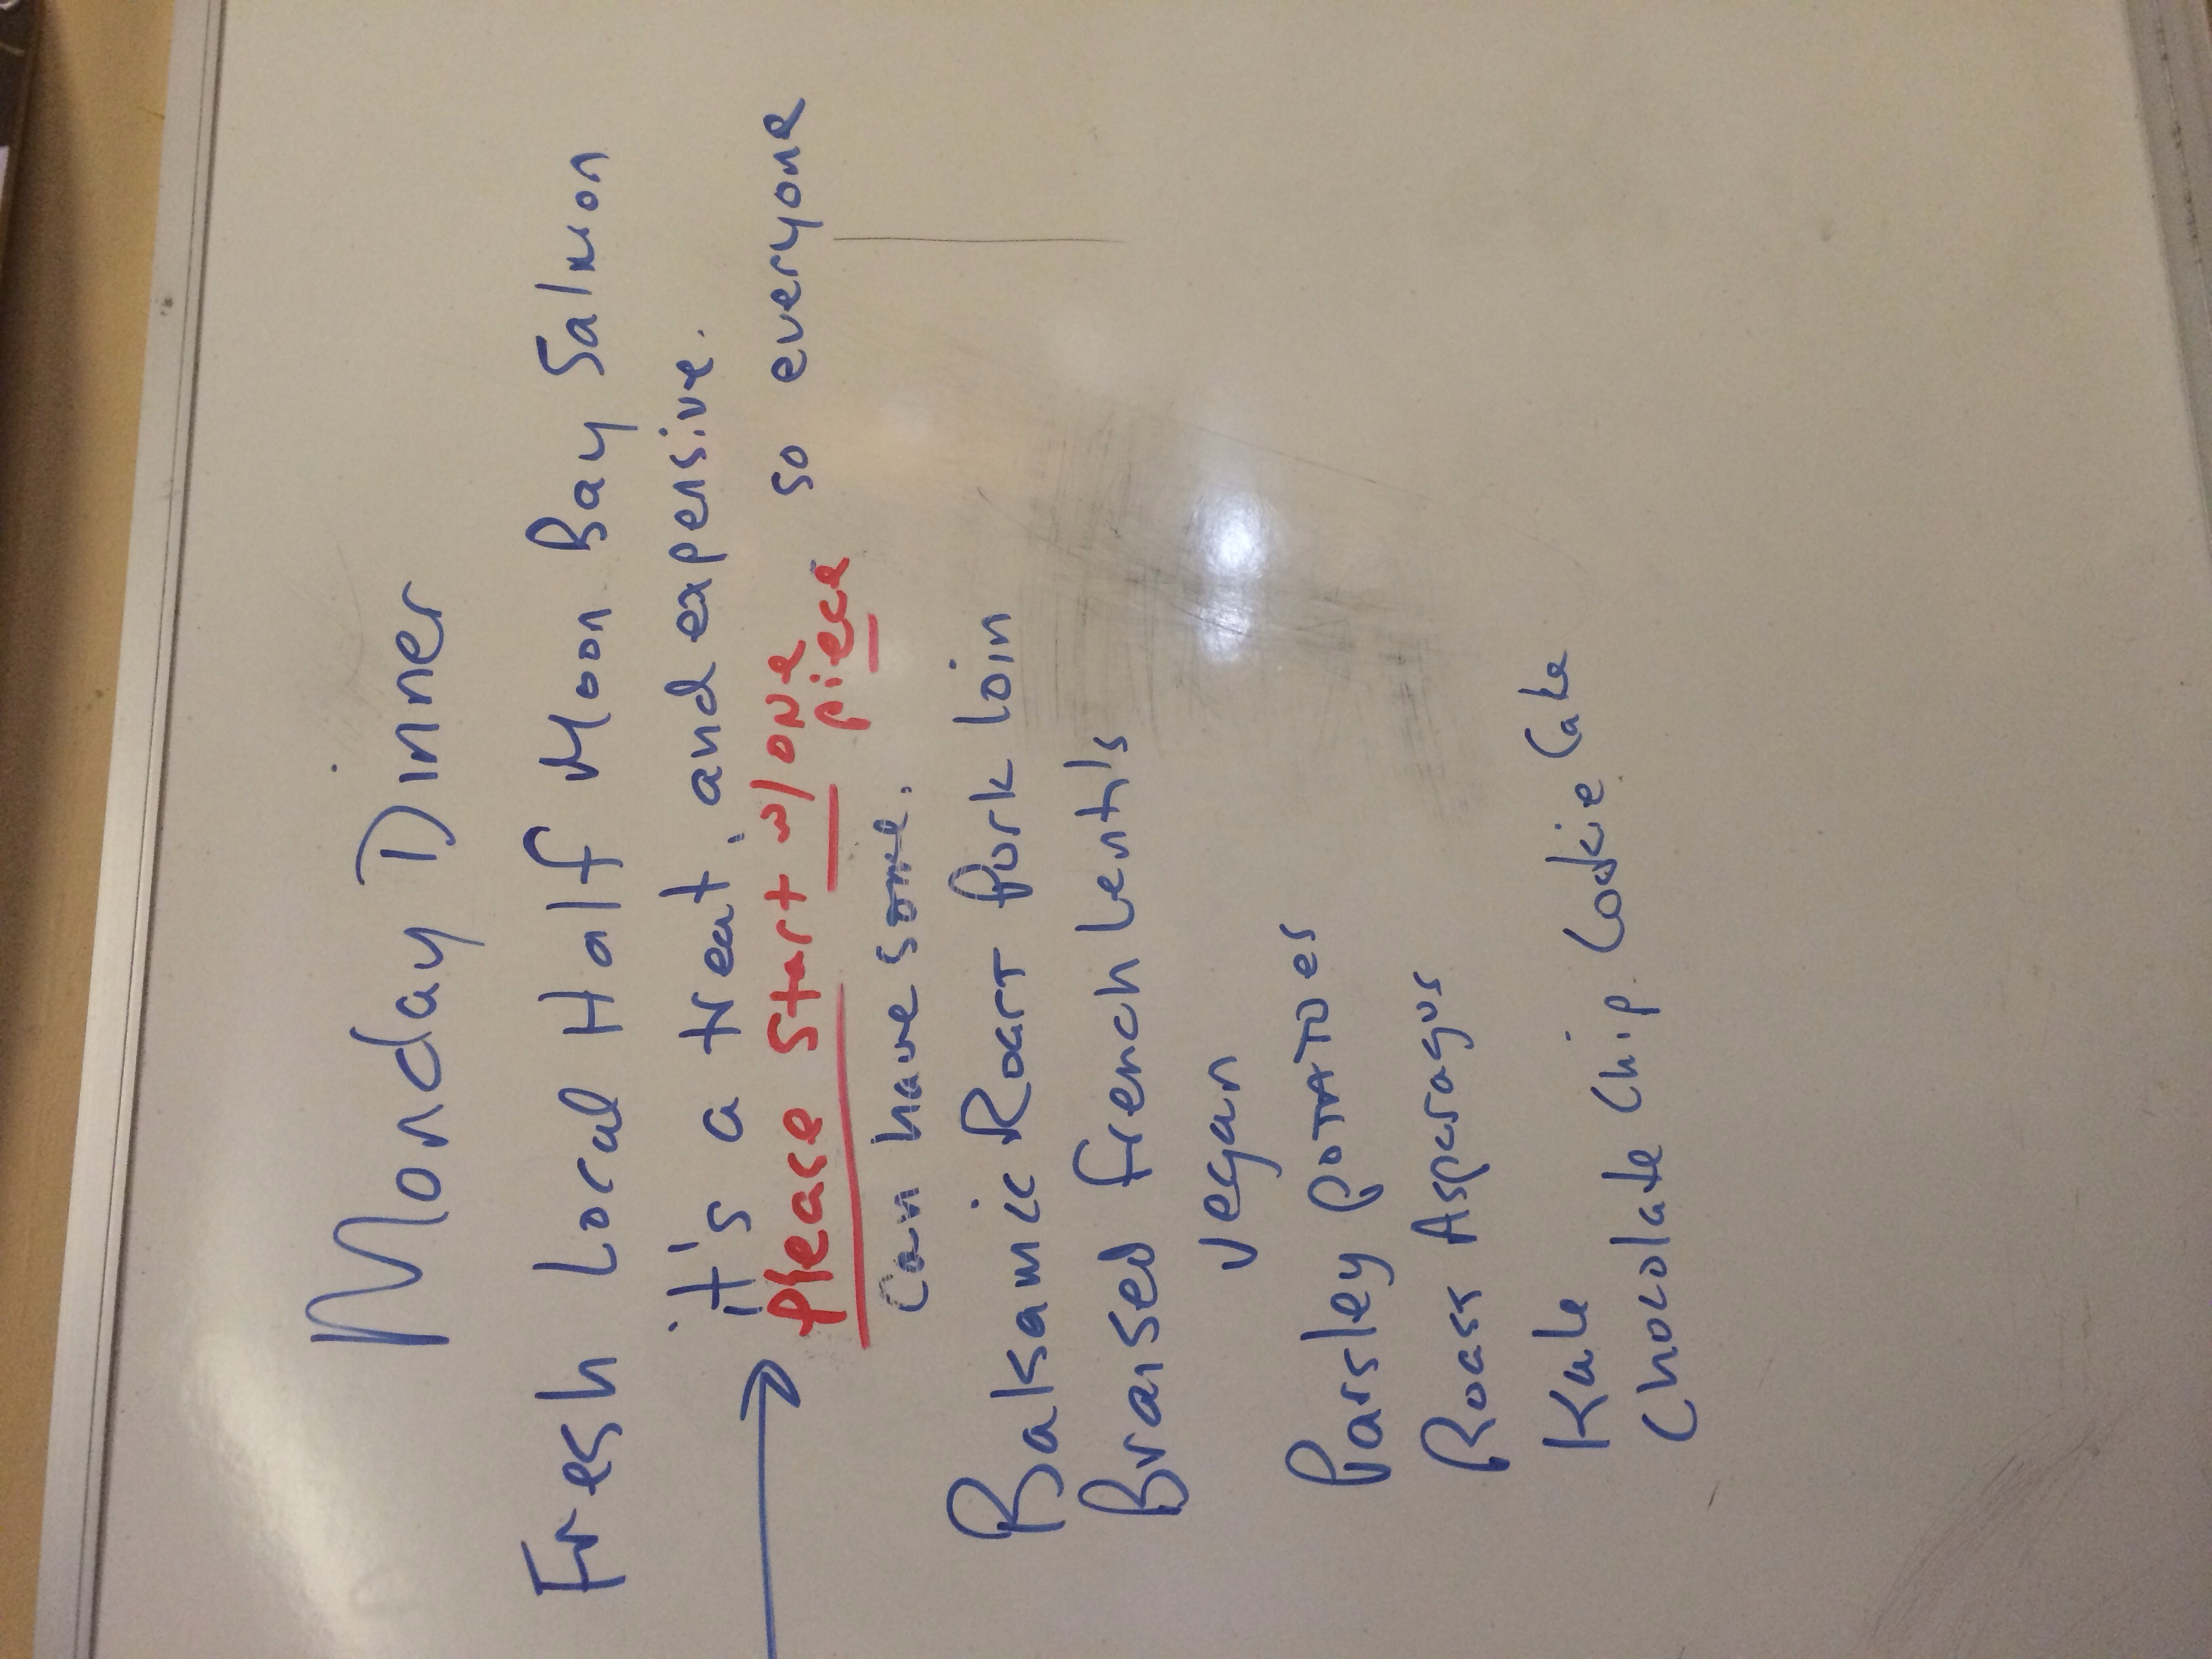 Monday Dinner
Fresh Local Half Moon Bay Salmon
it's a treat, and expensive.
please start w/ one piece so everyone
can have some.
Balsamic Roast Pork loin
Braised french Lentils
vegan
Parsley POTATOes
Roast Asparagus
Kale
Chocolate Chip Cookie Cake